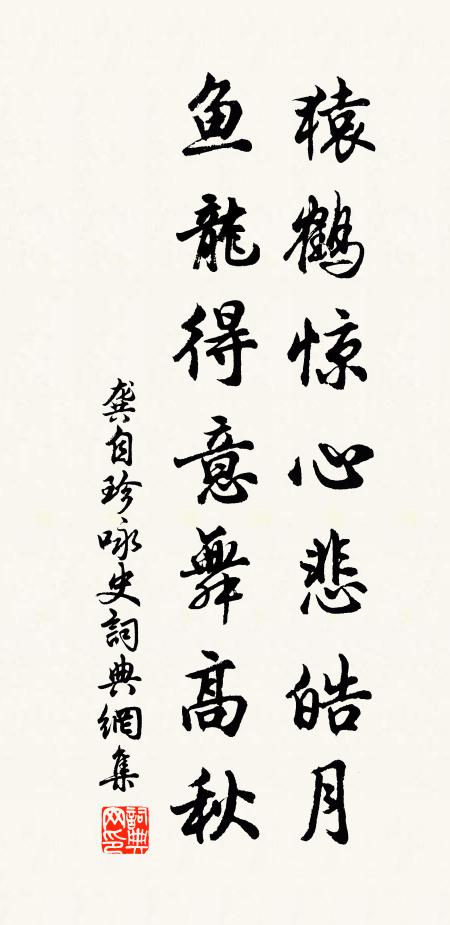 猿鶴惊心悲皓月
鱼龍得意舞高秋
龚自珍咏史詞典網集
詞典网印